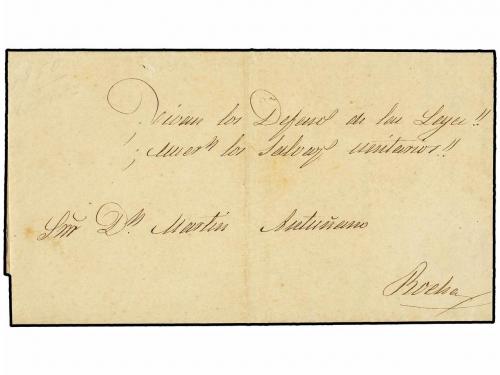 Vivan los Defens.s de las Leyes!!
¡ Muer.n los Salvag.s unitarios!!
Sor. Dn. Martin Antuñano
Rocha